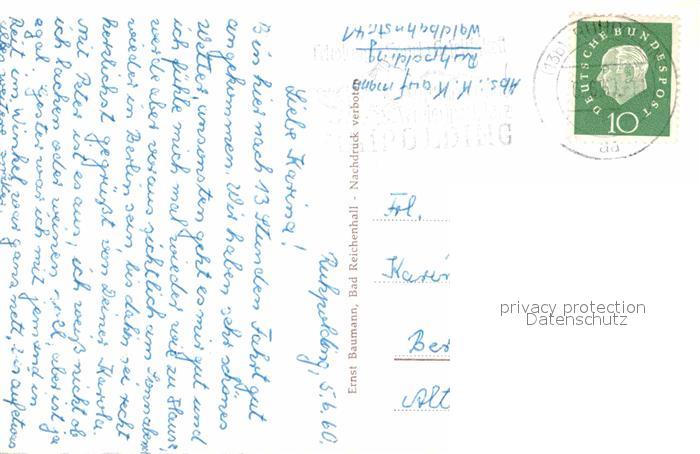 Abs.: K. Kaufmann
Ruhpolding
Waldbahnstr. 41
DEUTSCHE BUNDESPOST
10
RUHPOLDING
Ruhpolding, 5.6.60.
Liebe Karina!
Bin hier nach 13 Stunden Fahrt gut
angekommen. Wir haben sehr schönes
Wetter, ansonsten geht es mir gut und
ich fühle mich mal wieder wie zu Hause,
werde aber voraussichtlich am Sonnabend
wieder in Berlin sein, bis dahin sei recht
herzlichst gegrüßt von Deiner Karola.
Mit Peter ist es aus, ich weiß nicht ob
ich lachen oder weinen soll, aber ist ja
egal. Gestern war ich mit jemand in
Reit im Winkel war ganz nett,
Ernst Baumann, Bad Reichenhall - Nachdruck verboten
Frl.
Karin
Ber
Alt
privacy protection
Datenschutz